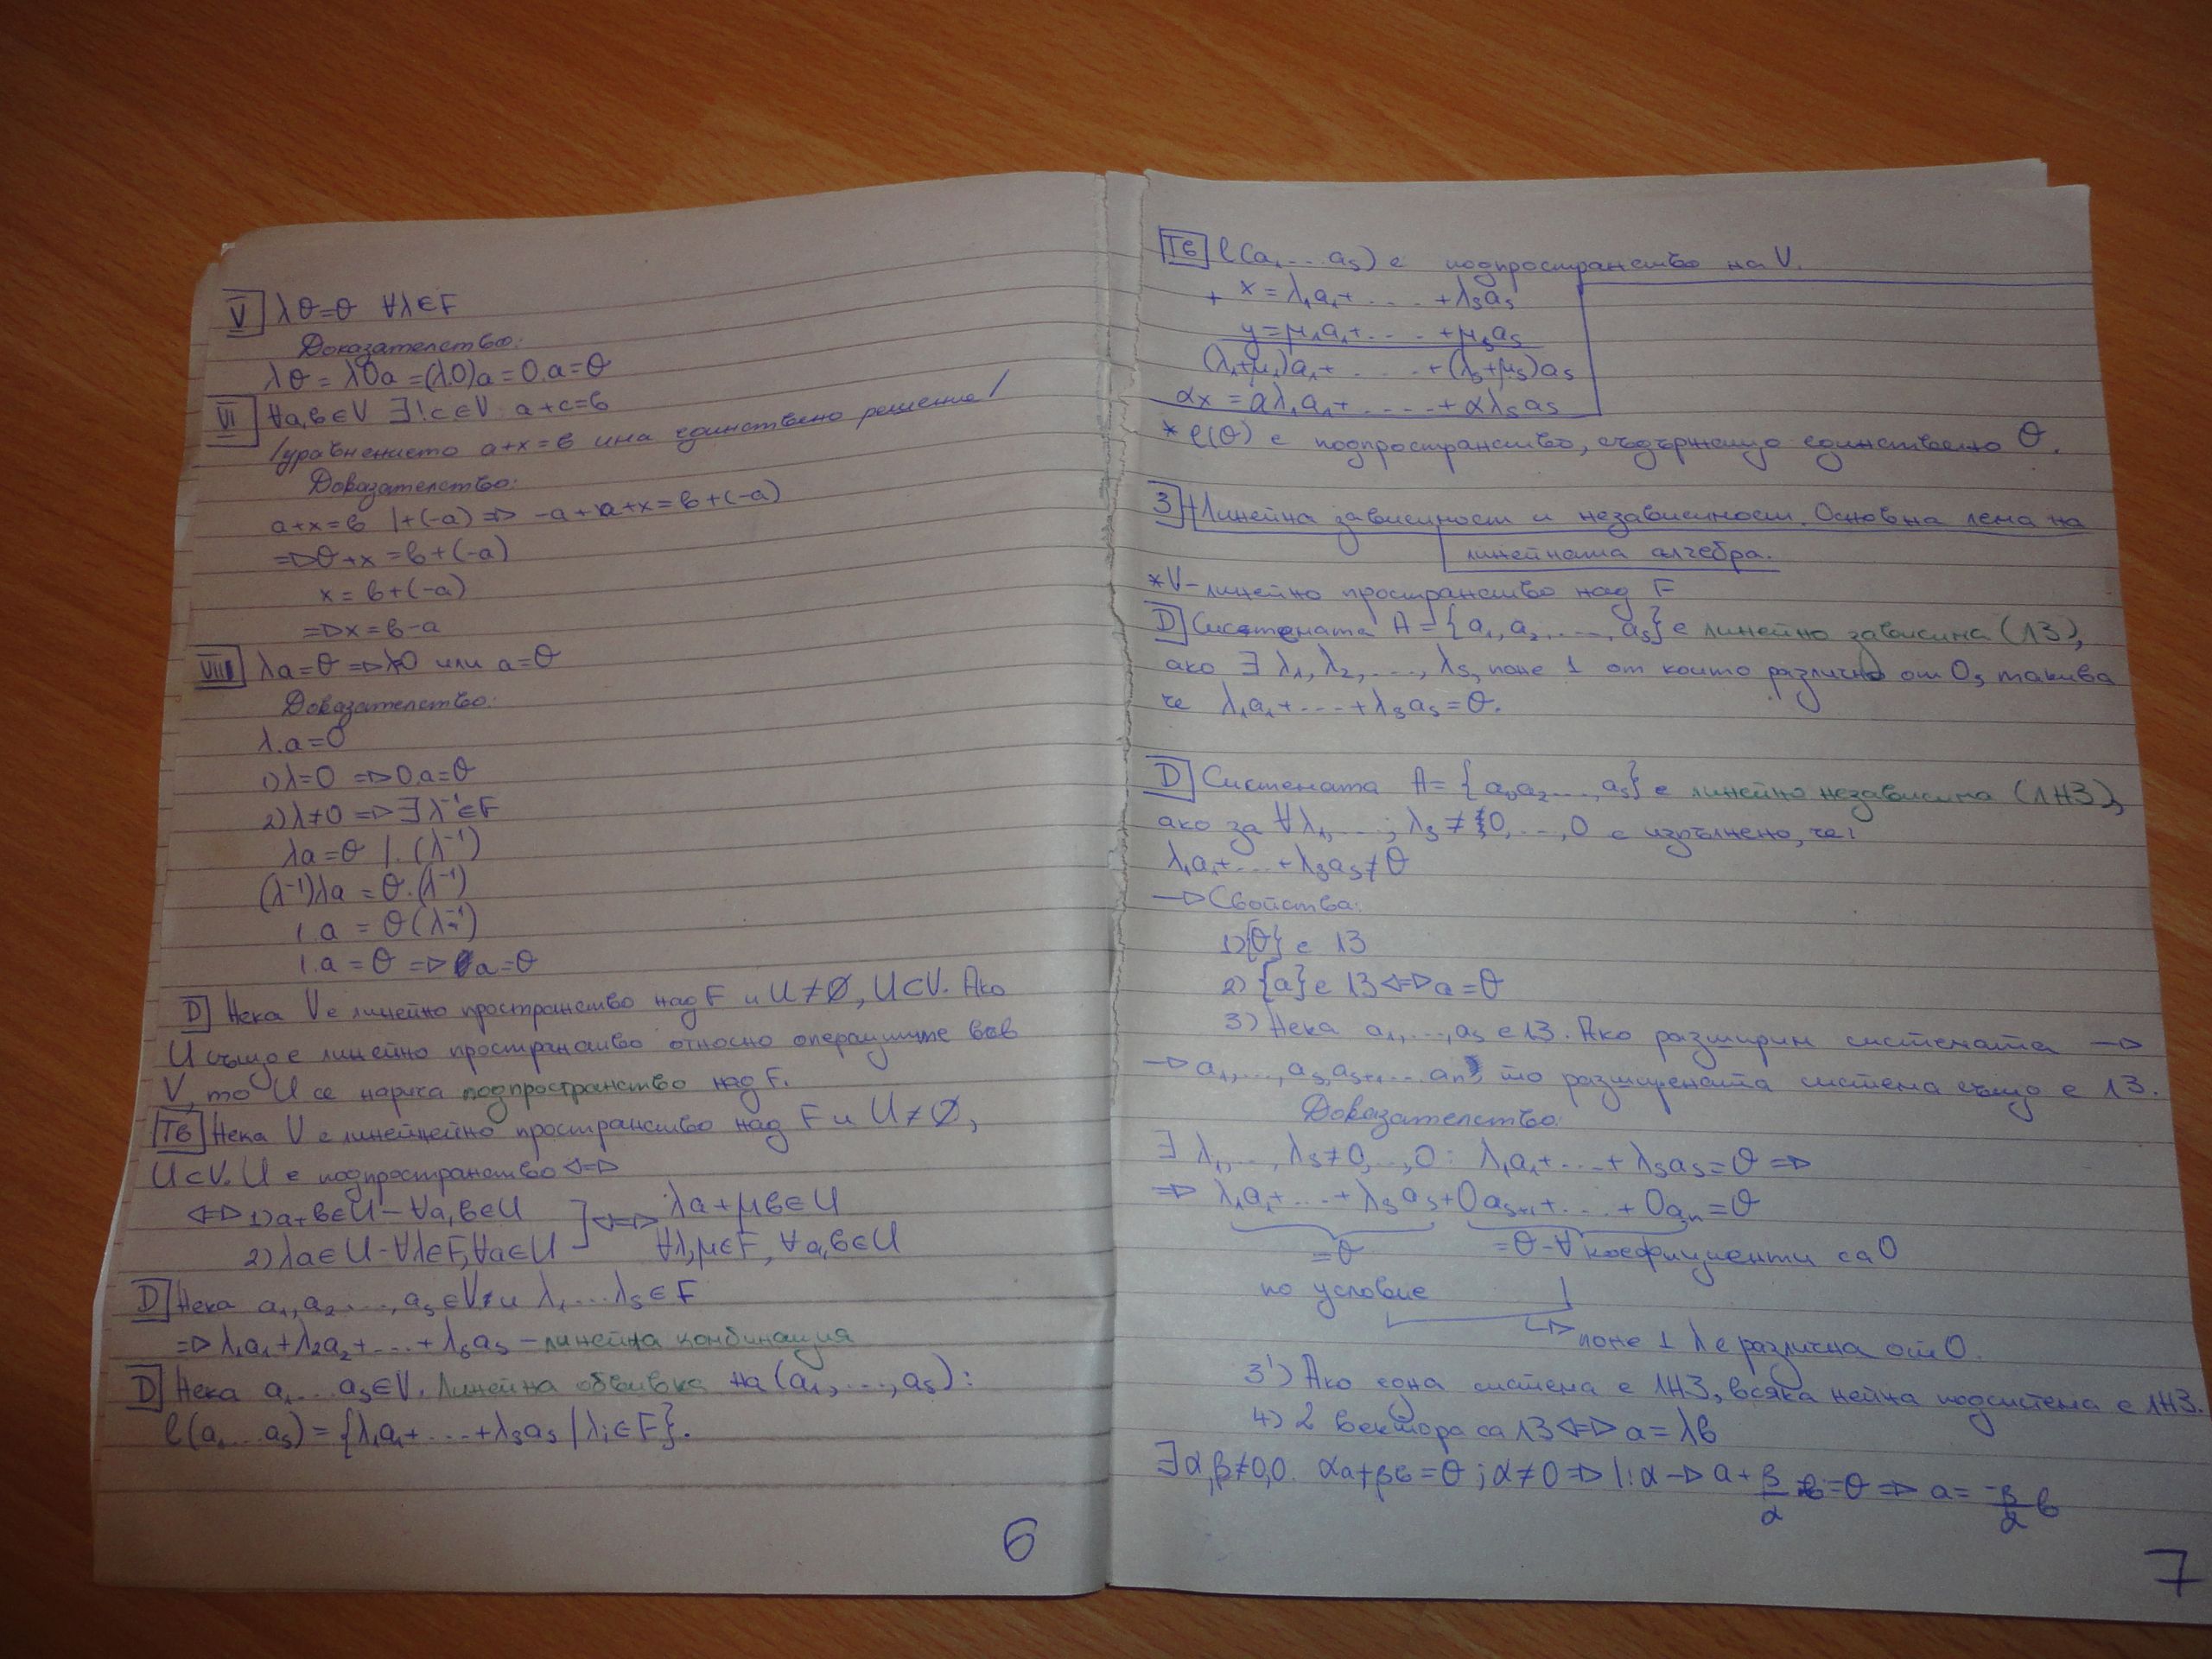 V λθ=θ ∀λ∈F
Доказателство:
λθ = λ0a =(λ.0)a = 0.a = θ
VI ∀a,b∈V ∃!c∈V a+c=b
/уравнението a+x=b има единствено решение/
Доказателство:
a+x=b |+(-a) => -a+a+x=b+(-a)
=>θ+x=b+(-a)
x=b+(-a)
=>x=b-a
VIII λa=θ => λ=0 или a=θ
Доказателство:
λ.a=0
1) λ=0 => 0.a=θ
2) λ≠0 => ∃λ⁻¹∈F
λa=θ |.(λ⁻¹)
(λ⁻¹)λa = θ.(λ⁻¹)
1.a = θ(λ⁻¹)
1.a = θ => a=θ
D Нека V е линейно пространство над F и U≠∅, U⊂V. Ако
U също е линейно пространство относно операциите във
V, то U се нарича подпространство над F.
Тв Нека V е линейно пространство над F и U≠∅,
U⊂V. U е подпространство <=>
<=> 1) a+b∈U-∀a,b∈U
2) λa∈U-∀λ∈F,∀a∈U <=> λa+μb∈U
∀λ,μ∈F, ∀a,b∈U
D Нека a₁,a₂,...,aₛ∈V и λ₁...λₛ∈F
=> λ₁a₁+λ₂a₂+...+λₛaₛ – линейна комбинация
D Нека a₁...aₛ∈V. Линейна обвивка на (a₁,...,aₛ):
l(a₁...aₛ)={λ₁a₁+...+λₛaₛ/λᵢ∈F}.
6
Тв l(a₁...aₛ) е подпространство на V.
+ x=λ₁a₁+....+λₛaₛ
y=μ₁a₁+....+μₛaₛ
(λ₁+μ₁)a₁+....+(λₛ+μₛ)aₛ
αx=αλ₁a₁+....+αλₛaₛ
* l(θ) е подпространство, съдържащо единствено θ.
3 Линейна зависимост и независимост. Основна лема на
линейната алгебра.
*V-линейно пространство над F
D Системата A={a₁,a₂,...,aₛ} е линейно зависима (ЛЗ),
ако ∃ λ₁,λ₂,...,λₛ, поне 1 от които различно от 0, такива
че λ₁a₁+...+λₛaₛ=θ.
D Системата A={a₁,a₂...,aₛ} е линейно независима (ЛНЗ),
ако за ∀λ₁,...,λₛ≠0,...,0 е изпълнено, че:
λ₁a₁+...+λₛaₛ≠θ
→ Свойства:
1) {θ} е ЛЗ
2) {a} е ЛЗ <=> a=θ
3) Нека a₁,...,aₛ е ЛЗ. Ако разширим системата →
→ a₁,...,aₛ,aₛ₊₁...aₙ, то разширената система също е ЛЗ.
Доказателство:
∃ λ₁,...,λₛ≠0,...,0: λ₁a₁+...+λₛaₛ=θ =>
=> λ₁a₁+...+λₛaₛ+0aₛ₊₁+...+0aₙ=θ
=θ =θ-∀ коефициенти са 0
по условие
→ поне 1 λ е различна от 0.
3') Ако една система е ЛНЗ, всяка нейна подсистема е ЛНЗ.
4) 2 вектора са ЛЗ <=> a=λb
∃α,β≠0,0. αa+βb=θ; α≠0 => |:α → a+β/α b=θ => a=-β/α b
7